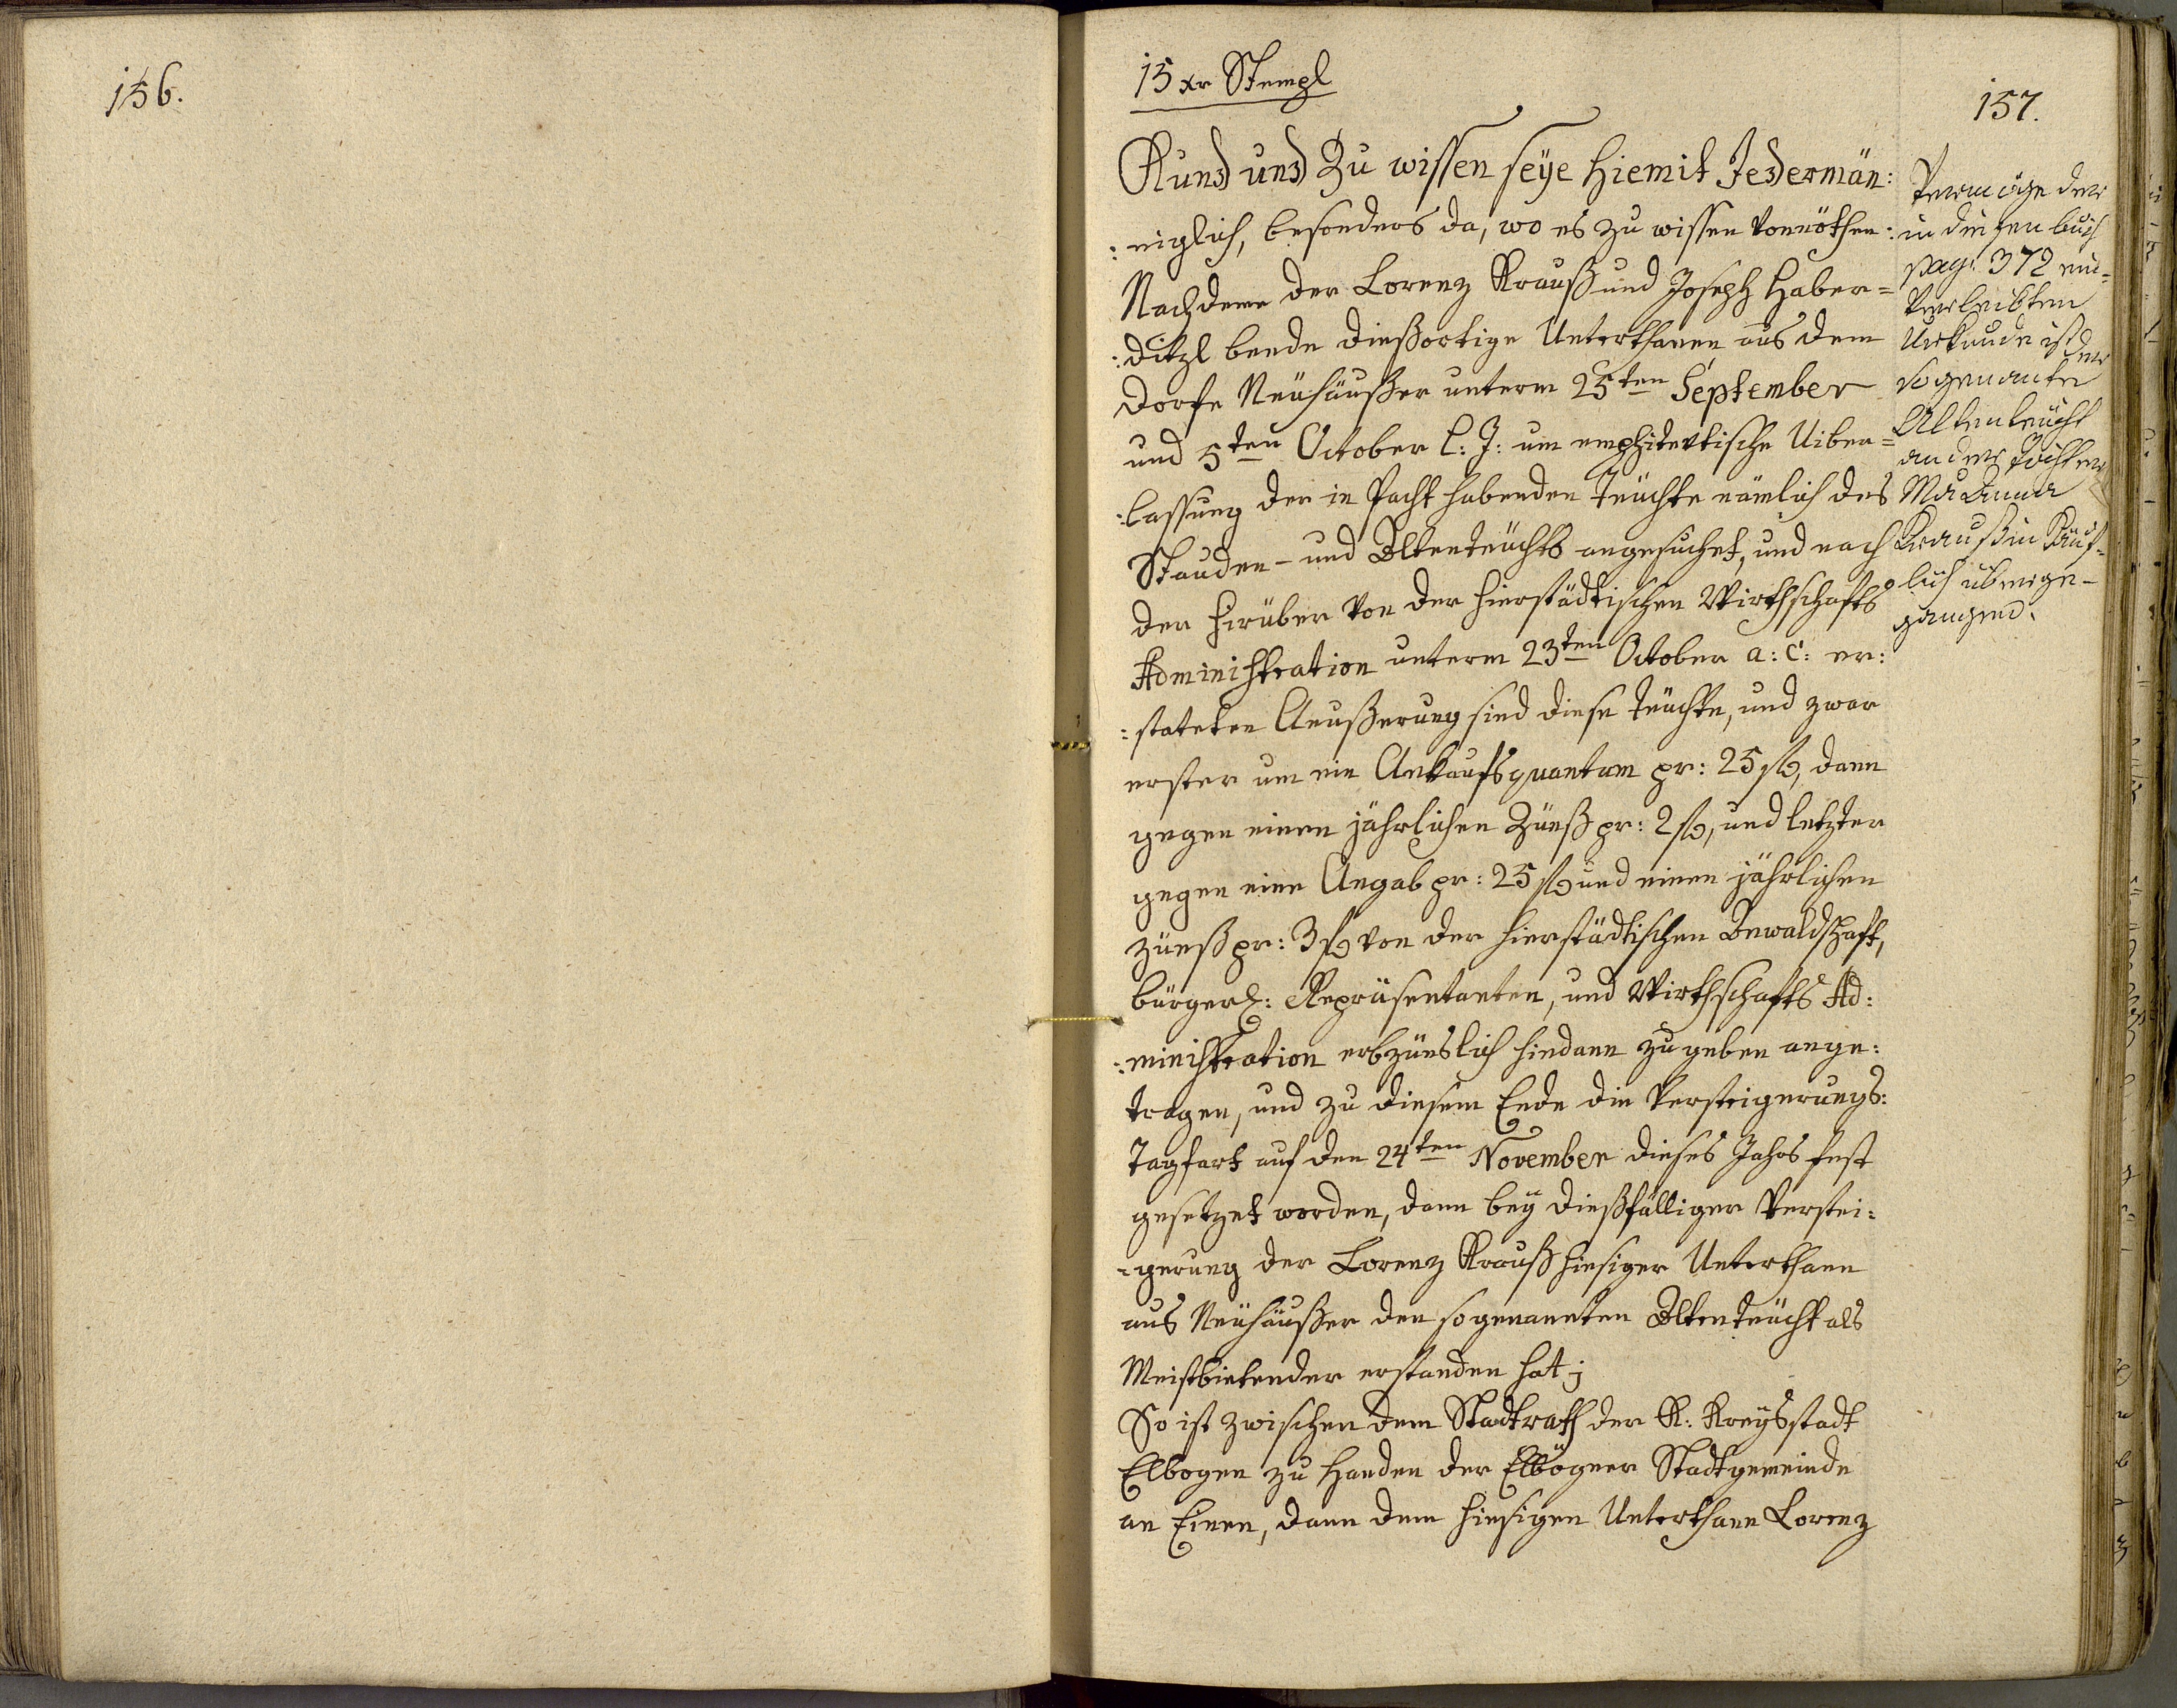 156.
15 xr Stempl
157.
Kund und Zu wissen seÿe hiemit Jedermän:
:niglich, besonders da, wo es zu wissen vonnöthen:
Nachdeme der Lorenz Krauß und Joseph Haber=
:ditzl beede dießortige Unterthanen aus dem
Dorfe Neühäußer unterm 25ten September
und 5ten October l: J: um emphitevtische Uiber=
:lassung der in Pacht habenden Teüchte nämlich des
Stauden- und Altenteüchts angesuchet, und nach
der hirüber von der hierstädtischen Wirthschafts
Administration unterm 23ten October a: c: er:
:stateten Aeußerung sind diese Teüchte, und zwar
erster um ein Ankaufsquantum pr: 25 fl, dann
gegen einen jährlichen Zünß pr: 2 fl, und letzter
gegen eine Angab pr: 25 fl und einen jährlichen
zünß pr: 3 fl von der hierstädtischen
bürgerl: Repräsentanten, und Wirthschafts Ad:
:ministration erbzünslich hindann zu geben ange:
tragen, und zu diesem Ende die Versteigerungs:
Tagfart auf den 24ten November dieses Jahrs fest
gesetzet worden, dann beÿ dießfälliger Verstei:
-gerung der Lorenz Krauß hiesiger Unterthann
aus Neühäußer den sogenannten Altenteücht als
Meistbietender erstanden hat;
So ist zwischen dem Stadtrath der K: Kreÿsstadt
Elbogen zu Handen der Elbögner Stadtgemeinde
an Einen, dann dem hiesigen Unterthann Lorenz
Vermöge der
in diesen buch
pag: 372 ein-
verleibten
Urkunde ist der
sogenante
Altenteücht
an der Tochter
Mar Anna
Kraußin Käuf-
lich überge-
gangen.